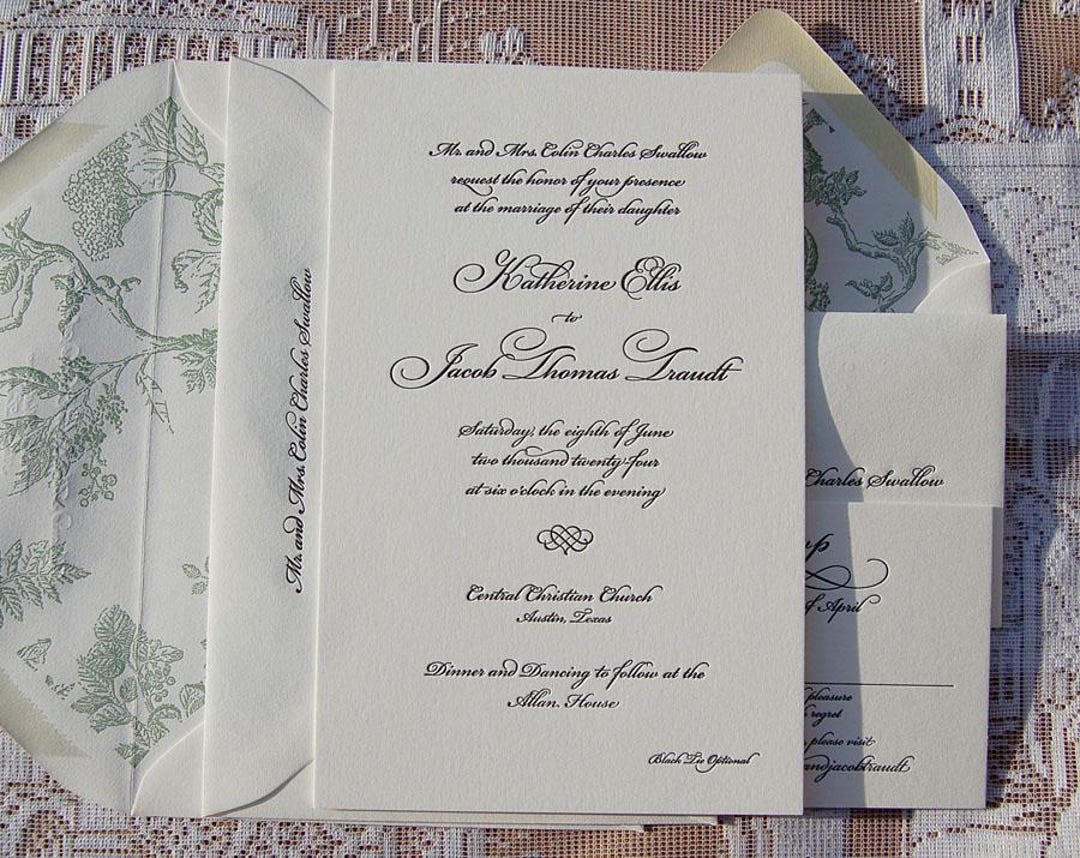 Mr. and Mrs. Colin Charles Swallow
request the honor of your presence
at the marriage of their daughter
Katherine Ellis
to
Jacob Thomas Traudt
Saturday, the eighth of June
two thousand twenty-four
at six o'clock in the evening
Central Christian Church
Austin, Texas
Dinner and Dancing to follow at the
Allan. House
Black Tie Optional
Mr. and Mrs. Colin Charles Swallow
Charles Swallow
of April
pleasure
regret
please visit
andjacobtraudt